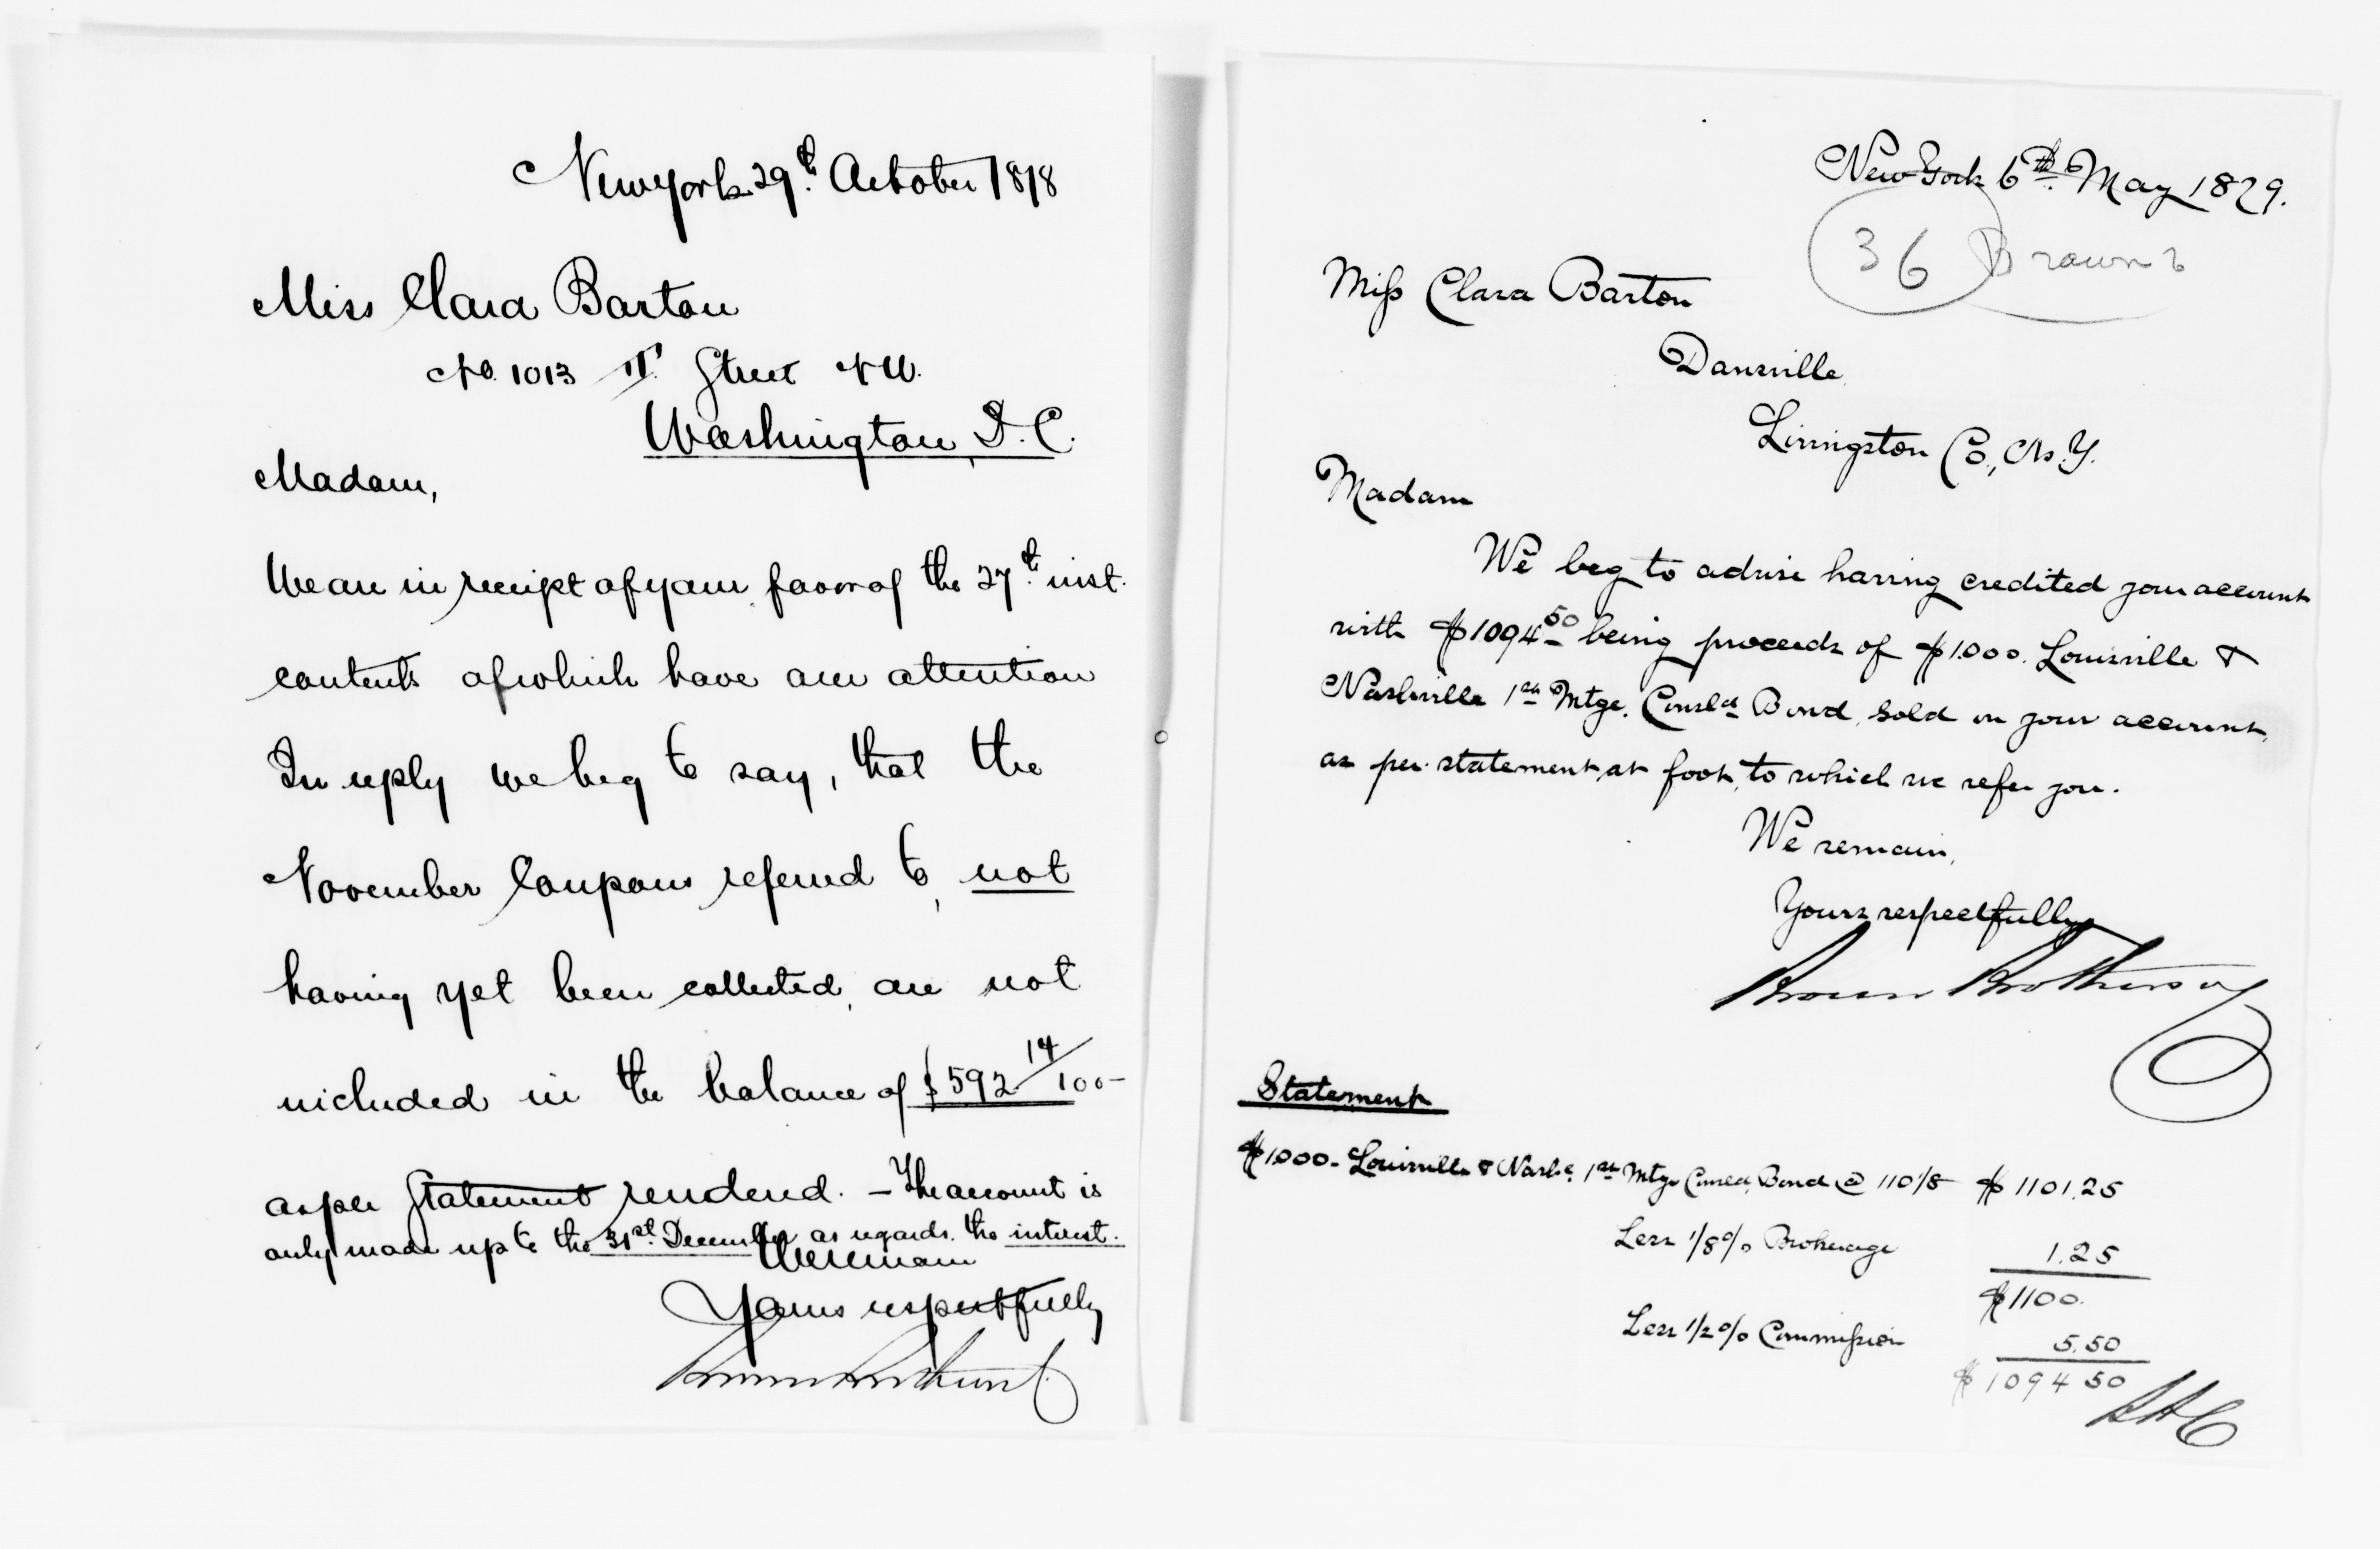 New York 29th. October 1878
Miss Clara Barton
No. 1013 Street N W.
Washington, D. C.
Madam,
We are in receipt of your favor of the 27th. inst.
contents of which have our attention
In reply we beg to say, that the
November Coupons referred to, not
having yet been collected, are not
included in the balance of $592 14/100-
as per Statement rendered. - The account is
only made up to the 31st. December as regards. the interest.
We remain
Yours respectfully
Brown Brothers
New York 6th. May 1879.
36 Brown
Miss Clara Barton
Dansville
Livingston Co., N. Y.
Madam
We beg to advise having credited your account
with $1094 50 being proceeds of $1.000. Louisville &
Nashville 1st Mtge. Consld Bond, sold on your account,
as per statement at foot, to which we refer you.
We remain,
Yours respectfully
Brown Brothers Co
Statement
$1.000- Louisville & Nashe. 1st Mtge Consld. Bond @ 110 1/8 $1101.25
Less 1/8 % Brokerage 1.25
$1100.
Less 1/2 % Commission 5.50
$1094 50